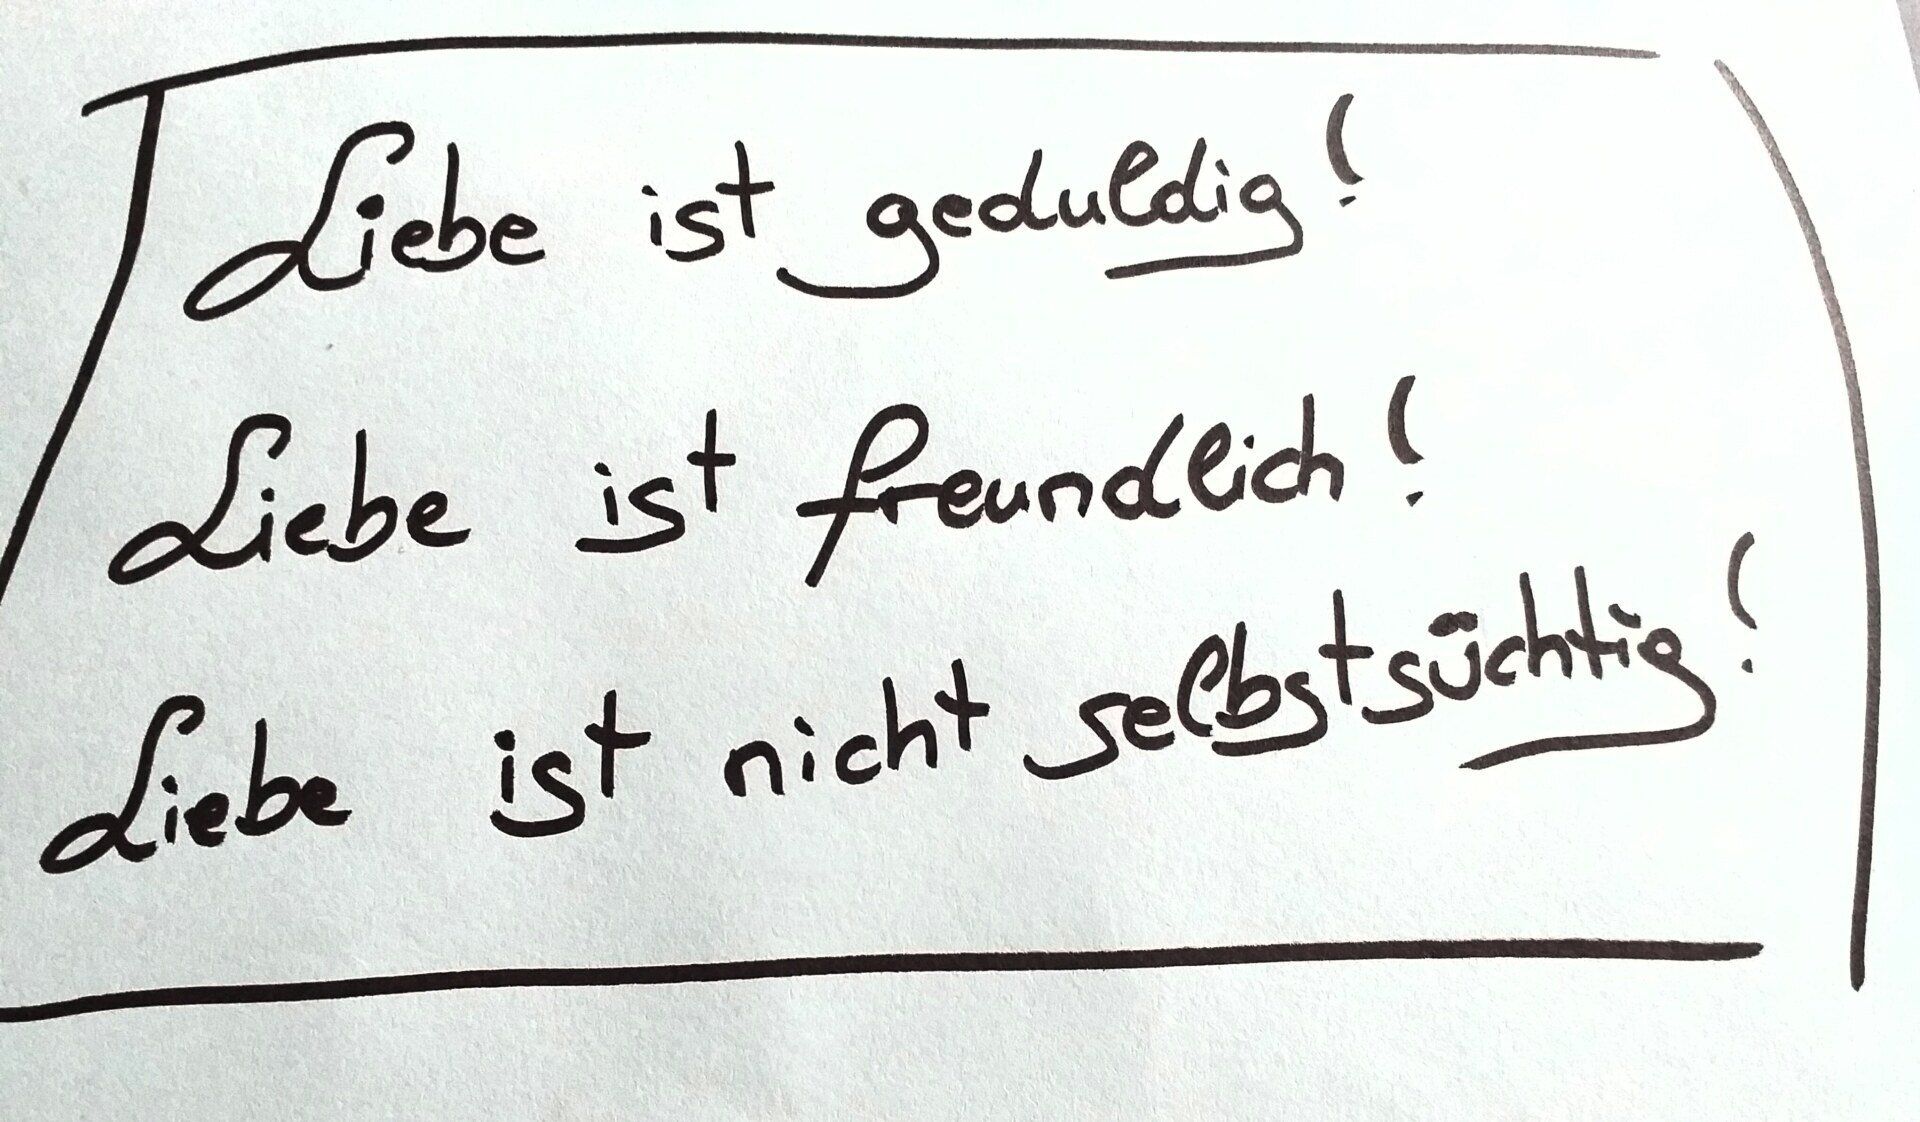 Liebe ist geduldig!
Liebe ist freundlich!
Liebe ist nicht selbstsüchtig!